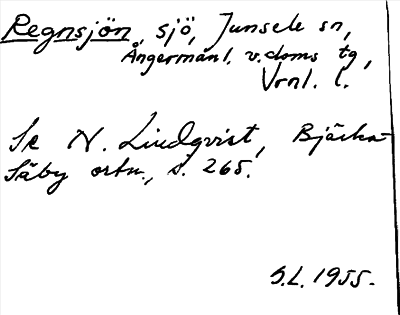 Regnsjön, sjö, Junsele sn,
Ångermanl. v. doms tg,
Vrnl. l.
Se N. Lindqvist, Bjärka-
Säby ortn., s. 265.
S.L. 1955.